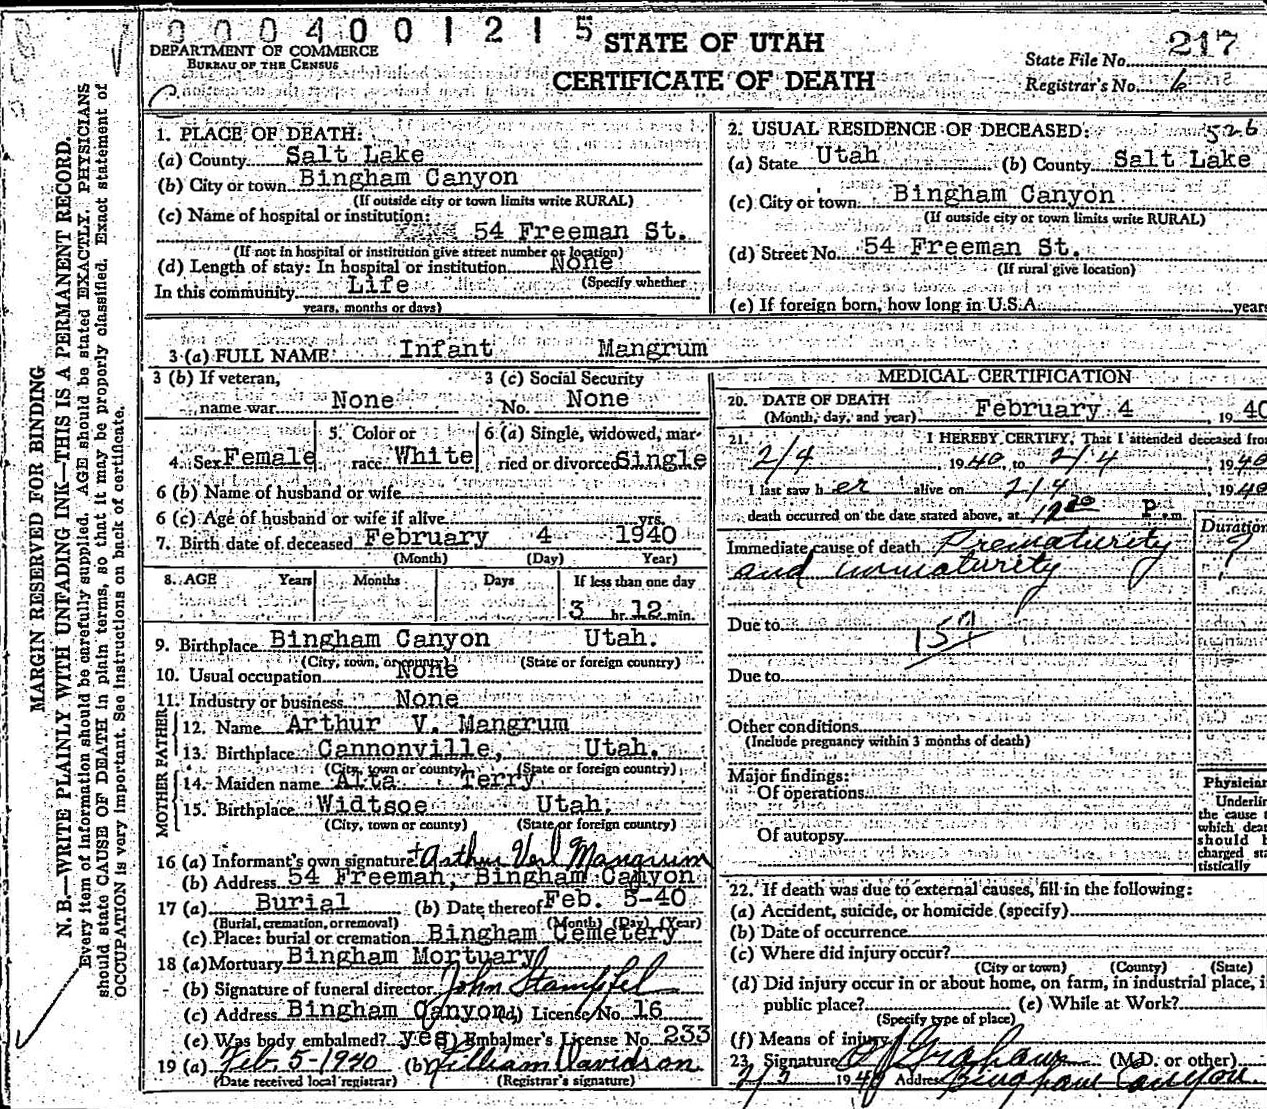 0 0 0 4 0 0 1 2 1 5
STATE OF UTAH
CERTIFICATE OF DEATH
DEPARTMENT OF COMMERCE
BUREAU OF THE CENSUS
State File No. 217
Registrar's No. 6
MARGIN RESERVED FOR BINDING
N. B.—WRITE PLAINLY WITH UNFADING INK—THIS IS A PERMANENT RECORD.
Every item of information should be carefully supplied. AGE should be stated EXACTLY. PHYSICIANS
should state CAUSE OF DEATH in plain terms, so that it may be properly classified. Exact statement of
OCCUPATION is very important. See instructions on back of certificate.
1. PLACE OF DEATH:
(a) County Salt Lake
(b) City or town Bingham Canyon
(If outside city or town limits write RURAL)
(c) Name of hospital or institution:
54 Freeman St.
(If not in hospital or institution give street number or location)
(d) Length of stay: In hospital or institution None
(Specify whether
In this community Life
years, months or days)
2. USUAL RESIDENCE OF DECEASED: 526
(a) State Utah (b) County Salt Lake
(c) City or town Bingham Canyon
(If outside city or town limits write RURAL)
(d) Street No. 54 Freeman St.
(If rural give location)
(e) If foreign born, how long in U.S.A. years
3 (a) FULL NAME Infant Mangrum
3 (b) If veteran, name war None
3 (c) Social Security No. None
4. Sex Female
5. Color or race White
6 (a) Single, widowed, married or divorced Single
6 (b) Name of husband or wife
6 (c) Age of husband or wife if alive yrs.
7. Birth date of deceased February 4 1940
(Month) (Day) Year)
8. AGE Years Months Days If less than one day
3 hr. 12 min.
9. Birthplace Bingham Canyon Utah.
(City, town, or county) (State or foreign country)
10. Usual occupation None
11. Industry or business None
FATHER
12. Name Arthur V. Mangrum
13. Birthplace Cannonville, Utah.
(City, town or county) (State or foreign country)
MOTHER
14. Maiden name Alta Terry
15. Birthplace Widtsoe Utah.
(City, town or county) (State or foreign country)
16 (a) Informant's own signature Arthur Verl Mangrum
(b) Address 54 Freeman, Bingham Canyon
17 (a) Burial (b) Date thereof Feb. 5-40
(Burial, cremation, or removal) (Month) (Day) (Year)
(c) Place: burial or cremation Bingham Cemetery
18 (a) Mortuary Bingham Mortuary
(b) Signature of funeral director John Stampfel
(c) Address Bingham Canyon (d) License No. 16
(e) Was body embalmed? yes (f) Embalmer's License No. 233
19 (a) Feb. 5-1940 (b) William Davidson
(Date received local registrar) (Registrar's signature)
MEDICAL CERTIFICATION
20. DATE OF DEATH
(Month, day, and year) February 4, 1940
21. I HEREBY CERTIFY, That I attended deceased from
2/4, 1940, to 2/4, 1940
I last saw her alive on 2/4, 1940
death occurred on the date stated above, at P m.
Duration
Immediate cause of death Prematurity ?
and immaturity
Due to 159
Due to
Other conditions
(Include pregnancy within 3 months of death)
Major findings:
Of operations
Of autopsy
Physician
Underlin
the cause t
which deat
should b
charged sta
tistically
22. If death was due to external causes, fill in the following:
(a) Accident, suicide, or homicide (specify)
(b) Date of occurrence
(c) Where did injury occur?
(City or town) (County) (State)
(d) Did injury occur in or about home, on farm, in industrial place, i
public place? (e) While at Work?
(Specify type of place)
(f) Means of injury
23. Signature (M.D. or other)
1940 Address Bingham Canyon.